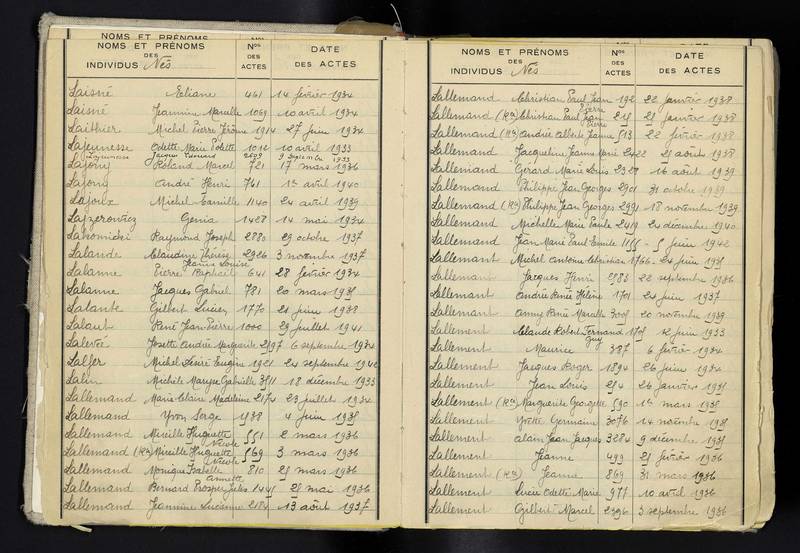 NOMS ET PRÉNOMS
NOMS ET PRÉNOMS DES INDIVIDUS Nés Nos DES ACTES DATE DES ACTES
Laisné Eliane 461 14 février 1934
Laisné Jeannine Marcelle 1069 10 avril 1934
Laithier Michel Pierre Jérôme 1914 27 juin 1934
Lajeunesse Odette Marie 1012 10 avril 1933
Lajeunesse 2689 9 septembre 1933
Lajony Roland Marcel 721 17 mars 1936
Lajony André Henri 761 15 avril 1940
Lajoux Michel Camille 1140 24 avril 1939
Lajzerowicz Genia 1428 14 mai 1934
Lakomicki Raymond Joseph 2880 29 octobre 1937
Lalande Claudine Thérèse 2926 3 novembre 1937
Jeanne Louise
Lalanne Pierre Raphaël 641 28 février 1934
Lalanne Jacques Gabriel 781 20 mars 1935
Lalante Gilbert Lucien 1770 21 juin 1938
Lalaut René Jean Pierre 1000 29 juillet 1941
Lalevé Josette Andrée Marguerite 2597 6 septembre 1934
Lalfer Michel Désiré Eugène 1921 24 septembre 1942
Lalin Michèle Maryse Gabrielle 3511 18 décembre 1933
Lallemand Marie Claire Madeleine 2174 23 juillet 1934
Lallemand Yvon Serge 1538 4 juin 1935
Lallemand Mireille Huguette 551 2 mars 1936
Nicole
Lallemand (Ron) Mireille Huguette 569 3 mars 1936
Nicole
Lallemand Monique Isabelle 810 25 mars 1936
Annette
Lallemand Bernard Prosper Jules 1445 25 mai 1936
Lallemand Jeannine Lucienne 2184 13 août 1937
NOMS ET PRÉNOMS DES INDIVIDUS Nés Nos DES ACTES DATE DES ACTES
Lallemand Christian Paul Jean 192 22 janvier 1938
Pierre
Lallemand (Ron) Christian Paul Jean 215 25 janvier 1938
Pierre
Lallemand (Ron) Andrée Alberte Jeanne 513 22 février 1938
Lallemand Jacqueline Jeanne Marie 2422 25 août 1938
Lallemand Gérard Marie Louis 2328 16 août 1939
Lallemand Philippe Jean Georges 2901 31 octobre 1939
Lallemand (Ron) Philippe Jean Georges 2991 18 novembre 1939
Lallemand Michelle Marie Paule 2419 24 décembre 1940
Lallemand Jean Marie Paul Emile 1155 5 juin 1942
Lallemant Michel Antoine Christian 1766 24 juin 1935
Lallemant Jacques Henri 2583 22 septembre 1936
Lallemant Andrée Renée Hélène 1701 24 juin 1937
Lallemant Anny Renée Marcelle 3005 20 novembre 1939
Lallement Claude Robert Fernand 1705 12 juin 1933
Guy
Lallement Maurice 387 6 février 1934
Lallement Jacques Roger 1894 26 juin 1934
Lallement Jean Louis 254 26 janvier 1935
Lallement (Ron) Marguerite Georgette 590 1er mars 1935
Lallement Yvette Germaine 3076 14 novembre 1935
Lallement Alain Jean Jacques 3284 9 décembre 1935
Lallement Jeanne 499 25 février 1936
Lallement (Ron) Jeanne 869 31 mars 1936
Lallement Lucie Odette Marie 977 10 avril 1936
Lallement Gilbert Marcel 2396 3 septembre 1936